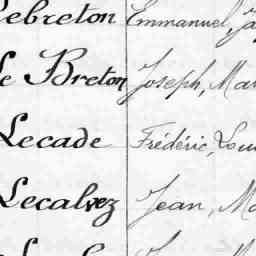 Lebreton Emmanuel, Ja
Le Breton Joseph, Mar
Lecade Frédéric, Lou
Lecalvez Jean, Ma